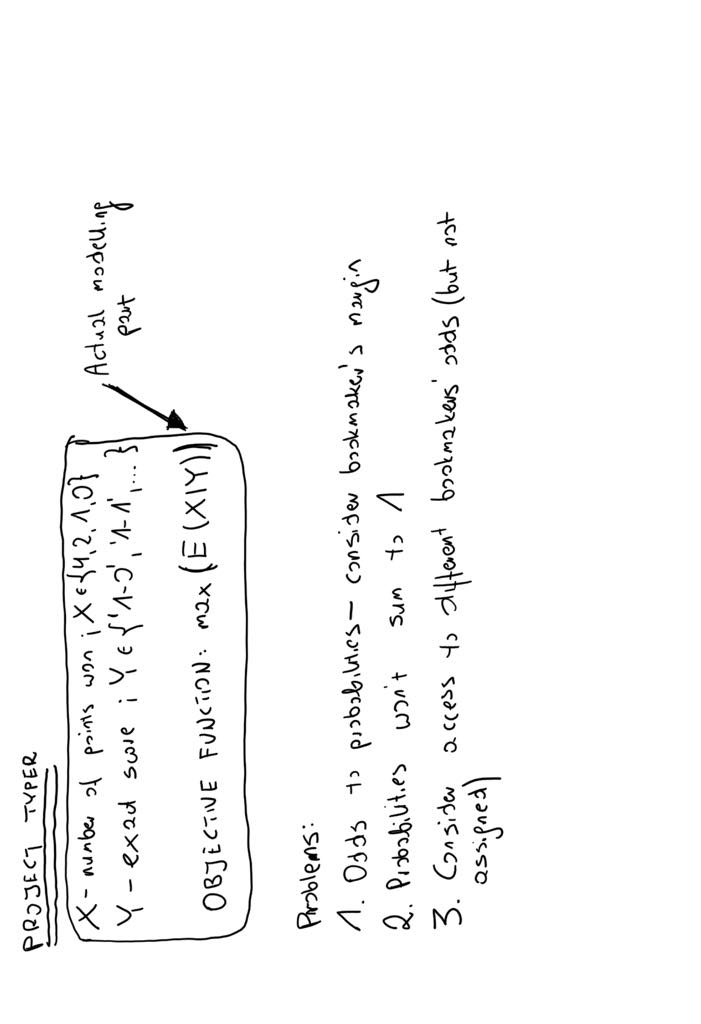 PROJECT TYPER
X - number of points won ; X ∈ {4,2,1,0}
Y - exact score ; Y ∈ {'1-0','1-1',...}
OBJECTIVE FUNCTION: max(E(X|Y))
Actual modelling
part
Problems:
1. Odds to probabilities - consider bookmaker's margin
2. Probabilities won't sum to 1
3. Consider access to different bookmakers' odds (but not
assigned)